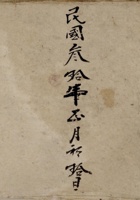 民國叁拾年正月初拾日